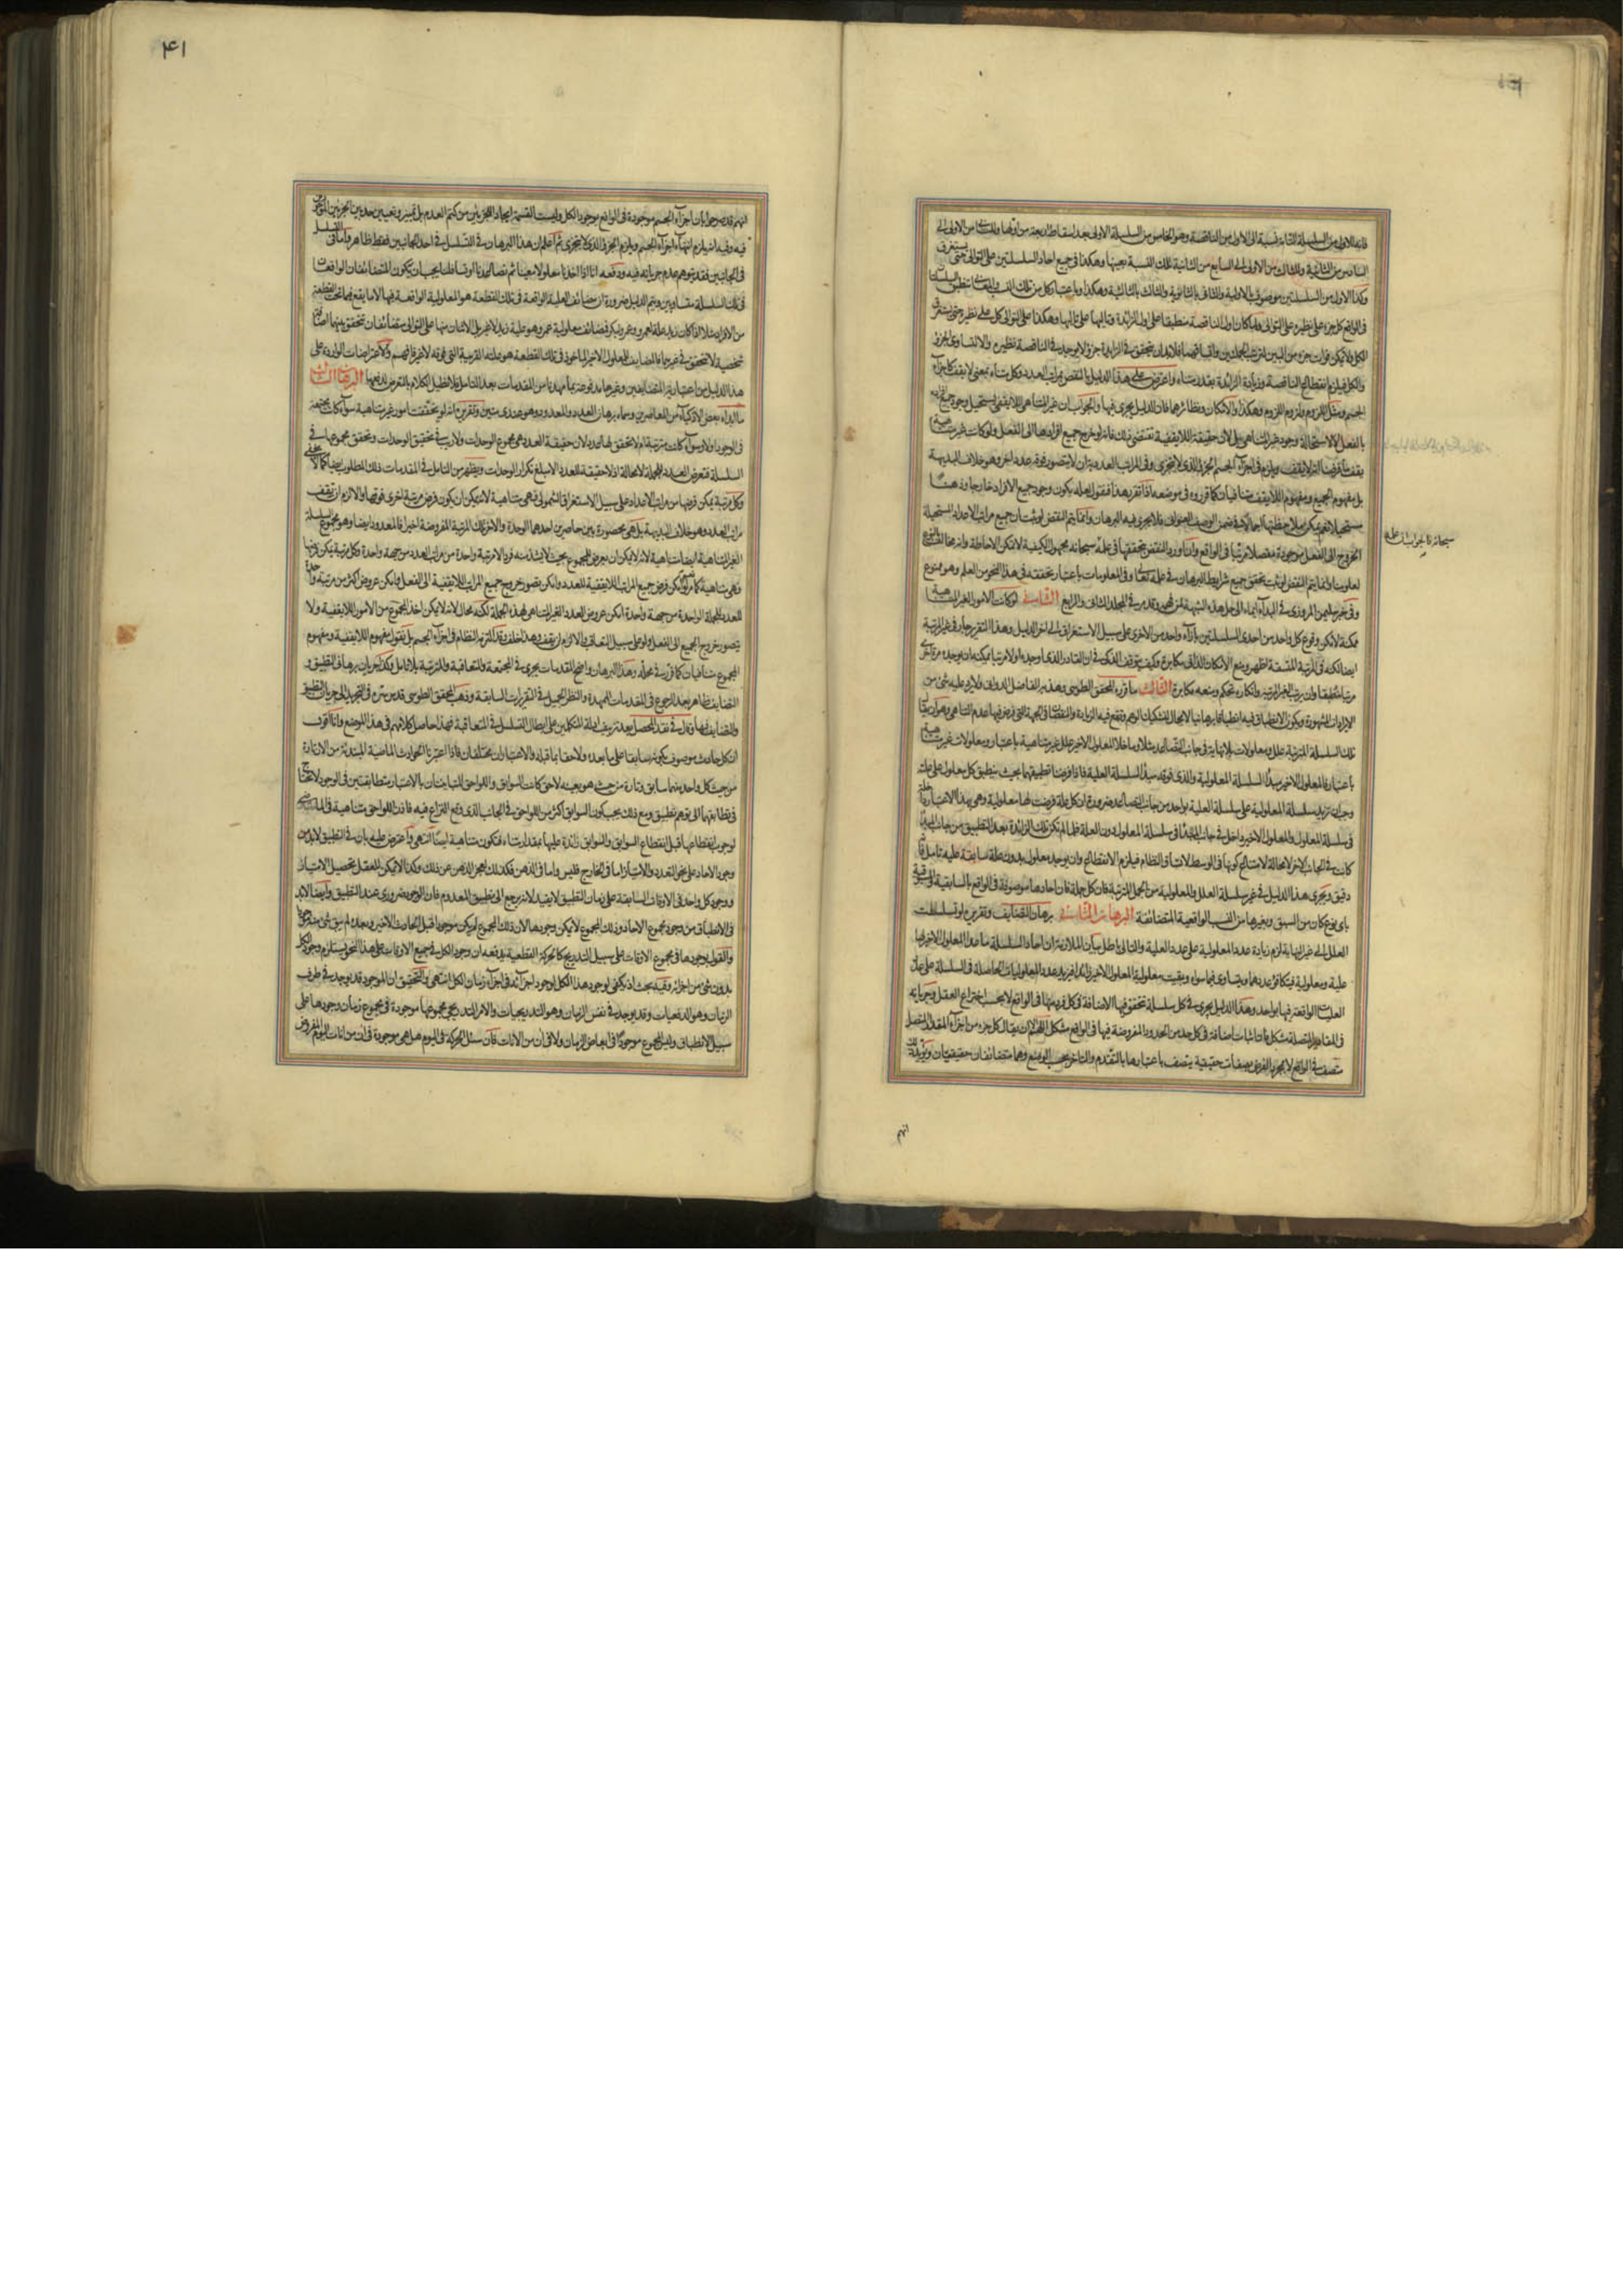 فانه للاول من السلسلة التامة نسبة الى الاول من الناقصة وهو الخامس من السلسلة الاولى بعد اسقاط اربعة من اولها وللثاني من الاولى الى
السادس من الثانية وللثالث من الاولى الى السابع من الثانية تلك النسبة بعينها وهكذا في جميع احاد السلسلتين على التوالى حتى يستغرق
وكذا الاول من السلسلتين موصوف بالاولية والثانى بالثانوية والثالث بالثالثية وهكذا وباعتبار كل من تلك النسب والمعانى ينطبق السلسلتان
فى الواقع كل جزء على نظيره على التوالى ولما كان اول الناقصة منطبقا على اول الزائدة وتاليها على تاليها وهكذا على التوالى كل على نظيره حتى يستغرق
الكل ولا يمكن فوات جزء من البين لترتب الجملتين واتساقهما فلا بد ان يتحقق فى الزايدة جزء لا يوجد فى الناقصة نظيره والا لتساوى الجزء
والكل فيلزم انقطاع الناقصة وزيادة الزائدة بقدر متناه واعترض على هذا الدليل بالنقض بمراتب العدد وكل متناه بمعنى لا يقف كاجزاء
الجسم ومثل اللزوم ولزوم اللزوم وهكذا والامكان ونظائرهما فان الدليل يجرى فيها والجواب ان غير المتناهى اللايقفى يستحيل وجود جميع افراده
بالفعل لا لاستحالة وجود غير المتناهى بل لان حقيقة اللايقفية تقتضى ذلك فانه لو خرج جميع افرادها الى الفعل ولو كانت غير متناهية
يقف ما فرض انه لا يقف ويلزم فى اجزاء الجسم الجزء الذى لا يتجزى وفى المراتب العددية ان لا يتصور فوقه عدد اخر وهو خلاف البديهة
بل مفهوم الجميع ومفهوم اللايقف متنافيان كما قرروه فى موضعه اذا تقرر هذا فنقول لعله يكون وجود جميع الافراد خارجا وذهنا
مستحيلا نعم يمكن ملاحظتها اجمالا فى ضمن الوصف العنوانى فلا يجرى فيه البرهان وانما يتم النقض لو ثبت ان جميع مراتب الاعداد المستحيلة
الخروج الى الفعل موجودة مفصلا مرتبا فى الواقع واما ورود النقض بتحققها فى علمه سبحانه مجهول الكيفية لا تمكن الاحاطة وانه مخالف بالنوع
لعلومنا وانما يتم النقض لو ثبت تحقق جميع شرايط البرهان فى علمه تعالى وفى المعلومات باعتبار تحققه فى هذا النحو من العلم وهو ممنوع
وفى خبر سليمن المروزى فى البداء ايماء الى حل هذه الشبهة لمن فهمه وقد مر فى المجلد الثانى والرابع الثانى لو كانت الامور الغير المتناهية
ممكنة لامكن وقوع كل واحد من احدى السلسلتين بازاء واحد من الاخرى على سبيل الاستغراق الى اخر الدليل وهذا التقرير جار فى غير المرتبة
ايضا لكنه فى المرتبة المتسقة اظهر ومنع الامكان الذاتى مكابرة وكيف يتوقف الذكى فى ان القادر الذى اوجده اولا مرتبا يمكنه ان يوجده مرة اخرى
مرتبا منطبقا وان يرتب الغير المرتبة وانكاره تحكم ومنعه مكابرة الثالث ما قرره المحقق الطوسى وهذبه الفاضل الدوانى ولا يرد عليه شىء من
الايرادات المشهورة ويكون الانطباق فيه انطباقا برهانيا لا مجال لتشكيك الوهم وتقع فيه الزيادة والنقصان فى الجهة التى فرض فيها عدم التناهى وهو ان يقال
تلك السلسلة المترتبة علل ومعلولات بلا نهاية فى جانب التصاعد مثلا وما خلا المعلول الاخير علل غير متناهية باعتبار ومعلولات غير متناهية
باعتبار فالمعلول الاخير مبدأ السلسلة المعلولية والذى فوقه مبدأ السلسلة العلية فاذا فرضنا تطبيقهما بحيث ينطبق كل معلول على علته
وجب ان تزيد سلسلة المعلولية على سلسلة العلية بواحد من جانب التصاعد ضرورة ان كل علة فرضت لها معلولية وهى بهذا الاعتبار داخلة
فى سلسلة المعلول والمعلول الاخير داخل فى جانب المبدأ فى سلسلة المعلول دون العلة فلما لم تكن تلك الزائدة بعد التطبيق من جانب المبدأ
كانت فى الجانب الاخر لا محالة لامتناع كونها فى الوسط لاتساق النظام فيلزم الانقطاع وان يوجد معلول بدون علة سابقة عليه تامل فانه
دقيق ويجرى هذا الدليل فى غير سلسلة العلل والمعلولية من الجمل المترتبة فان كل جملة فان احادها موصوفة فى الواقع بالسابقية والمسبوقية
باى نوع كان من السبق وبغيرها من النسب الواقعية المتضائفة البرهان الثانى برهان التضايف وتقريره لو تسلسلت
العلل الى غير النهاية لزم زيادة عدد المعلولية على عدد العلية والتالى باطل بيان الملازمة ان احاد السلسلة ما خلا المعلول الاخير لها
علية ومعلولية فيتكافؤ عددهما ويتساوى فيما سواه وبقيت معلولية المعلول الاخير زائدا فيزيد عدد المعلوليات الحاصلة فى السلسلة على عدد
العليات الواقعة فيها بواحد وهذا الدليل يجرى فى كل سلسلة تتحقق فيها الاضافة فى كل فرد منها فى الواقع لا بحسب اختراع العقل وجريانه
فى المقادير المتصلة مشكل فان اثبات اضافة فى كل حد من الحدود المفروضة فيها فى الواقع مشكل اللهم الا ان يقال كل جزء من اجزاء المقدار المتصل
متصف فى الواقع لا بمجرد الفرض بصفات حقيقية يتصف باعتبارها بالتقدم والتاخر بحسب الوضع وهما متضائفان حقيقيان ويؤيد ذلك
سبحانه فالجواب ان علمه
انهم
۴۱
انهم قد صرحوا بان اجزاء الجسم موجودة فى الواقع بوجود الكل وليست القسمة ايجادا للجزئين من كتم العدم بل تمييز وتعيين حد بين الجزئين الموجودين
فيه وفيه انه يلزم انتهاء اجزاء الجسم ويلزم الجزء الذى لا يتجزى ثم اعلم ان هذا البرهان فى التسلسل فى احد الجانبين فقط ظاهر واما فى التسلسل
فى الجانبين فقد يتوهم عدم جريانه فيه ودفعه انا اذا اخذنا معلولا معينا ثم تصاعدنا او تسافلنا يجب ان يكون المتضائفان الواقعان
فى تلك السلسلة متساويين ويتم الدليل ضرورة ان مضائف العلية الواقعة فى تلك القطعة هو المعلولية الواقعة فيها لا ما يقع فيما تحت القطعة
من الافراد مثلا اذا كان زيد علة لعمرو وعمرو لبكر فمضائف معلولية عمرو هو علية زيد لا غير بل الاثنان منها على التوالى متضائفان تتحقق بينهما اضافة
شخصية لا تتحقق فى غيرها فالمضايف للمعلول الاخير الماخوذ فى تلك القطعة هو علته القريبة التى فوقه لا غير فافهم والاعتراضات الواردة على
هذا الدليل من اعتبارية المتضايفين وغيرها مدفوعة بما مهدنا من المقدمات بعد التامل فلا نطيل الكلام بالتعرض لدفعها البرهان الثالث
ما ابداه بعض الاذكياء من المعاصرين وسماه برهان العدد والمعدود وهو عندى متين وتقريره انه لو تحققت امور غير متناهية سواء كانت مجتمعة
فى الوجود او لا وسواء كانت مترتبة ام لا تحقق لها عدد لان حقيقة العدد هى مجموع الوحدات ولا ريب فى تحقيق الوحدات وتحقق مجموعها فى
السلسلة فتعرض العدد للجملة لا محالة اذ لا حقيقة للعدد الا مبلغ تكرار الوحدات ويظهر من التامل فى المقدمات ذلك المطلوب ايضا كما لا يخفى
وكل مرتبة يمكن فرضها من مراتب الاعداد على سبيل الاستغراق الشمولى فهى متناهية لانه يمكن ان يكون فرض مرتبة اخرى فوقها والا لزم ان تقف
مراتب العدد وهو خلاف البديهة بل هى محصورة بين حاصرين احدهما الوحدة والاخر تلك المرتبة المفروضة اخيرا فالمعدود ايضا وهو مجموع السلسلة
الغير المتناهية ايضا متناهية لانه لا يمكن ان يعرض للمجموع بحيث لا يشذ منه فرد الا مرتبة واحدة من مراتب العدد من جهة واحدة وكل مرتبة يمكن فرضها
فهى متناهية كما مر ولو امكن فرض جميع المراتب اللايقفية للعدد وامكن تصور خروج جميع المراتب اللايقفية الى الفعل وامكن عروض اكثر من مرتبة واحدة
للعدد بالجملة الواحدة من جهة واحدة امكن عروض العدد الغير المتناهى لهذه الجملة لكنه محال لانه لا يمكن اخذ المجموع من الامور اللايقفية ولا
يتصور خروج الجميع الى الفعل ولو على سبيل التعاقب والا لزم ان يقف وهذا خلف وقد التزمه النظام فى اجزاء الجسم بل نقول مفهوم اللايقفية ومفهوم
المجموع متنافيان كما قرر فى محله وهذا البرهان واضح المقدمات يجرى فى المجتمعة والمتعاقبة والمترتبة بلا تامل وكذا جريان برهانى التطبيق و
التضايف ظاهر بعد الرجوع فى المقدمات الممهدة والنظر الجميل فى التقريرات السابقة وذهب المحقق الطوسى قدس سره فى التجريد الى جريان التطبيق
والتضايف فيها وقال فى نقد المحصل بعد تزييف ادلة المتكلمين على ابطال التسلسل فى المتعاقبة فهذا حاصل كلامهم فى هذا الموضع وانا اقول
ان كل حادث موصوف بكونه سابقا على ما بعده ولاحقا بما قبله والاعتباران مختلفان فاذا اعتبرنا الحوادث الماضية المبتدئة من الان تارة
من حيث كل واحد منها سابق وتارة من حيث هو بعينه لاحق كانت السوابق واللواحق المتباينتان بالاعتبار متطابقتين فى الوجود لا نحتاج
فى تطابقهما الى توهم تطبيق ومع ذلك يجب كون السوابق اكثر من اللواحق فى الجانب الذى وقع النزاع فيه فاذن اللواحق متناهية فى الماضى
لوجوب انقطاعها قبل انقطاع السوابق والسوابق زائدة عليها بمقدار متناه فتكون متناهية ايضا انتهى واعترض عليه بان فى التطبيق لا بد من
وجود الاحاد على نحو التعدد والامتياز اما فى الخارج فليس واما فى الذهن فكذلك لعجز الذهن عن ذلك وكذا لا يمكن للعقل تحصيل الامتياز
ووجود كل واحد فى الاوقات السابقة على زمان التطبيق لا يفيد لانه يرجع الى تطبيق المعدوم فان الوجود ضرورى عند التطبيق وايضا لا بد
فى الانطباق من وجود مجموع الاحاد وذلك المجموع لا يمكن وجودها لان ذلك المجموع لم يكن موجودا قبل الحادث الاخير وبعده لم يبق شىء منه موجودا
والقول بوجودها فى مجموع الاوقات على سبيل التدريج كالحركة القطعية يدفعه ان وجود الكل فى جميع الاوقات على هذا النحو يستلزم وجود الكل
بدون شىء من اجزائه وفيه بحث اذ يكفى لوجود هذا الكل وجود اجزائه فى اجزاء زمان الكل انتهى والتحقيق ان الموجود قد يوجد فى طرف
الزمان وهو الدفعيات وقد يوجد فى نفس الزمان وهو التدريجيات والامر التدريجى مجموعها موجودة فى مجموع زمان وجودها على
سبيل الانطباق وليس المجموع موجودا فى ابعاض الزمان ولا فى ان من الانات فان سئل الحركة فى اليوم هل هى موجودة فى ان من انات اليوم المفروض